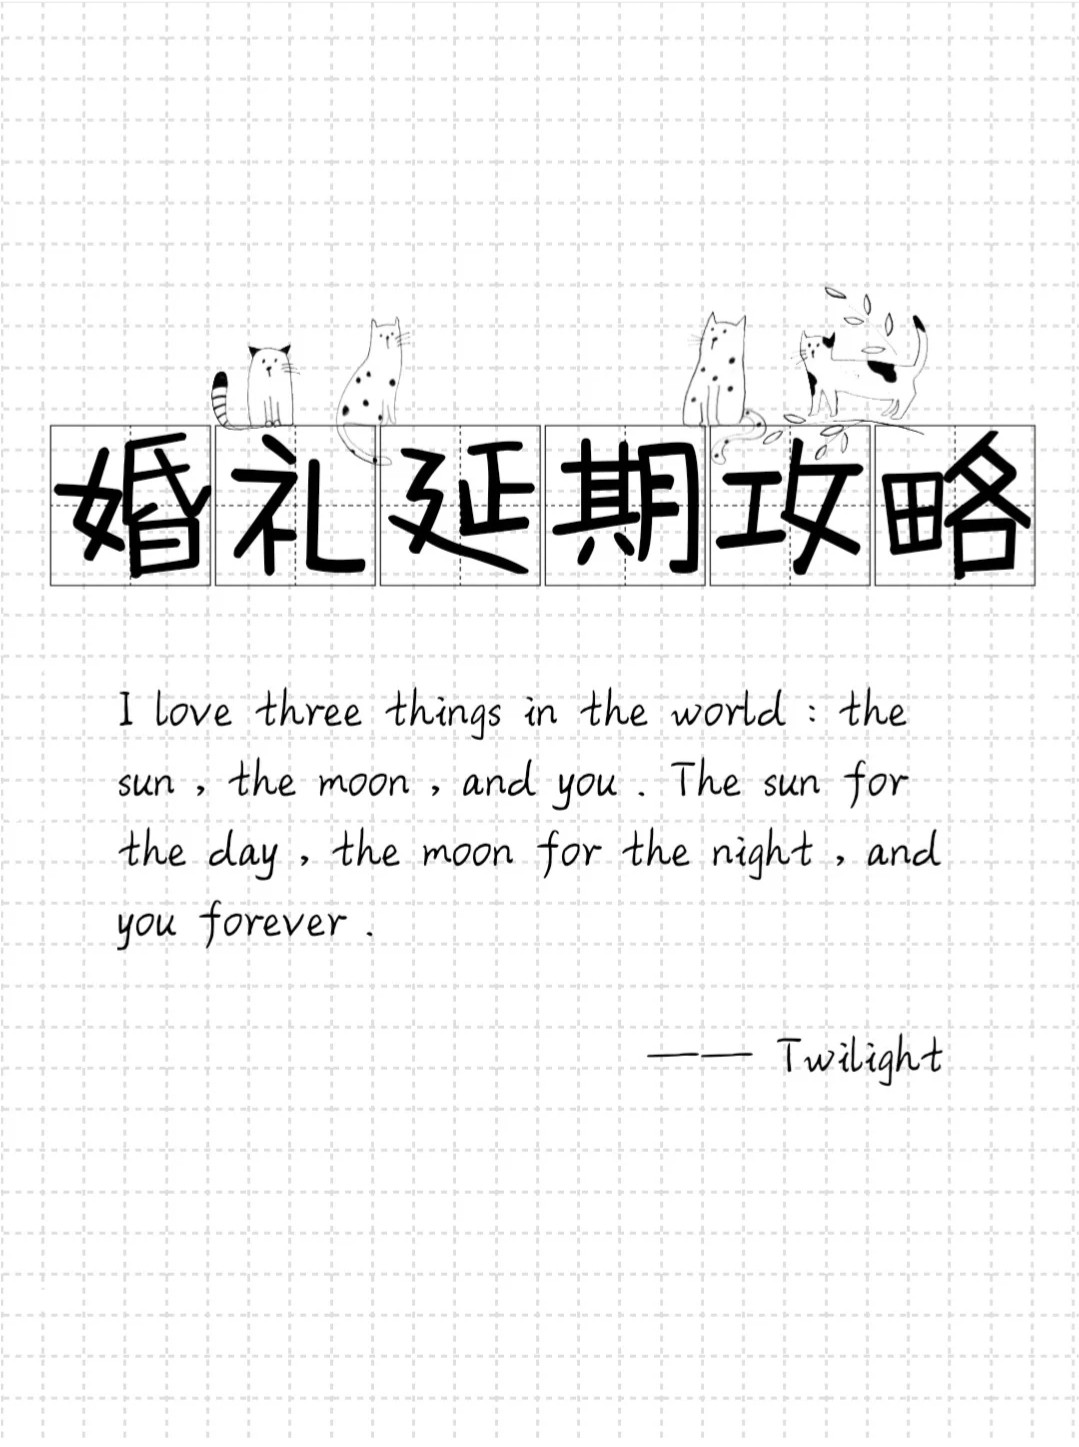 婚礼延期攻略
I love three things in the world : the
sun , the moon , and you . The sun for
the day , the moon for the night , and
you forever .
—— Twilight